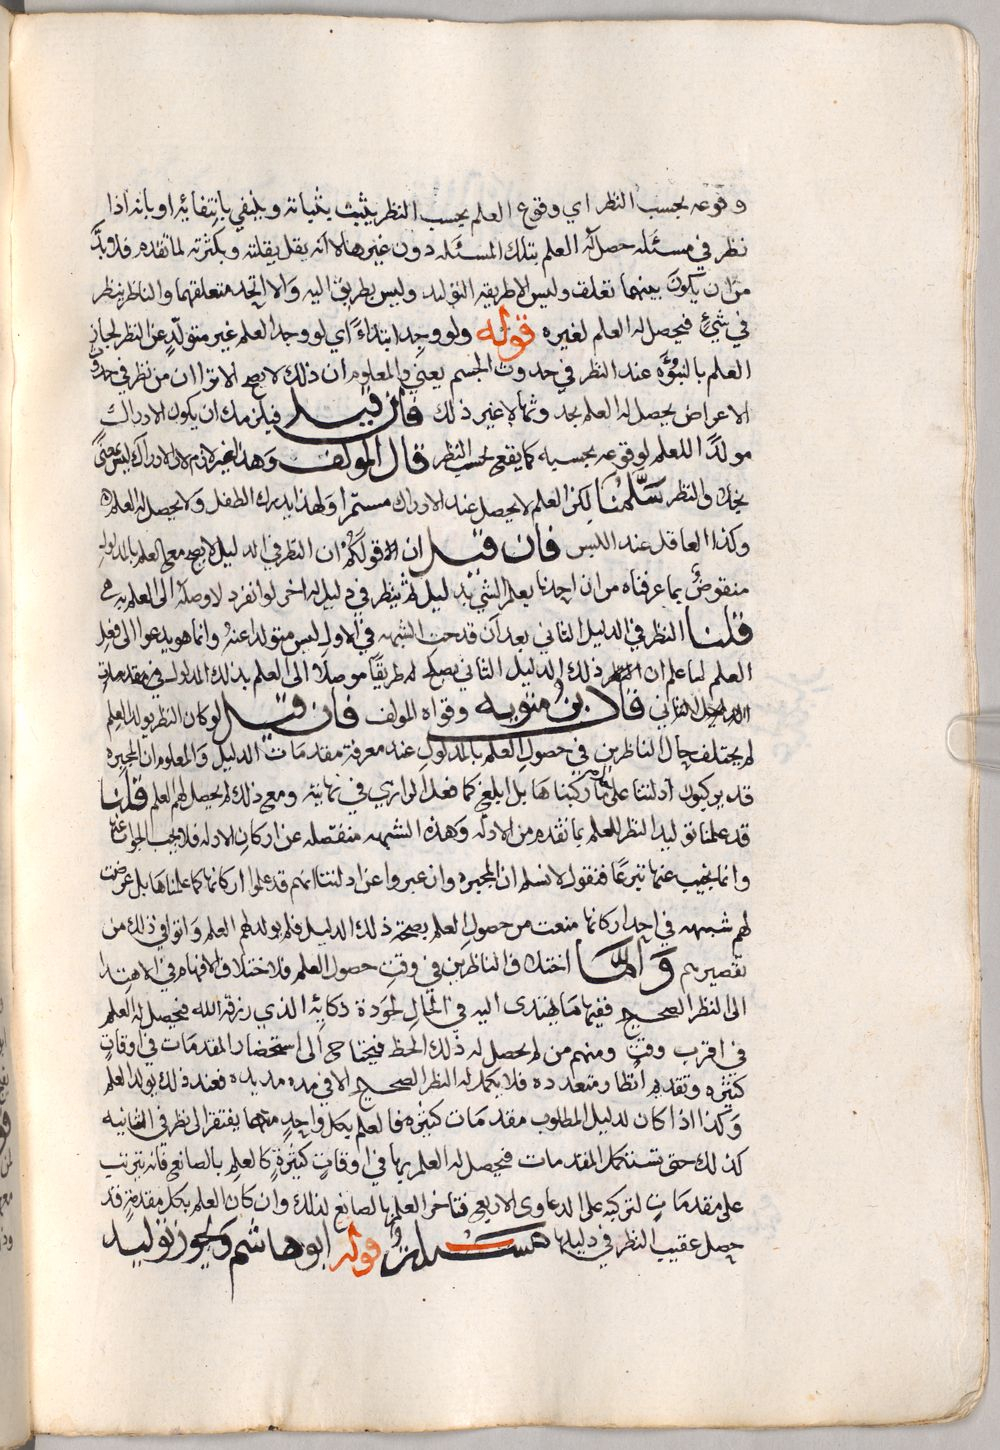 وقوعه بحسب النظر اي وقوع العلم بحسب النظر يثبت بثباته وينتفي بانتفائه او بانه اذا
نظر في مسئله حصل له العلم بتلك المسئله دون غيرها لا انه يقل بقلته وبكثرته لما تقدم فلا بدّ
من ان يكون بينهما تعلق وليس الا طريقه التوليد وليس بطريق اليه والا اتحد متعلقهما والناظر ينظر
في شيءٍ فيحصل له العلم لغيره قوله ولو وجد ابتداءً اي لو وجد العلم غير متولّدٍ عن النظر لجاز
العلم بالنبوّه عند النظر في حدوث الجسم يعني والمعلوم ان ذلك لا يصح الا ترا ان من نظر في حدوث
الاعراض يحصل له العلم بحدوثها لا غير ذلك فان قيل فيلزمك ان يكون الادراك
مولدًا للعلم لوقوعه بحسبه كما يقع بحسب النظر قال المولف وهذا غير لازم لان الادراك ليس بمعنًى
بخلاف النظر سلّمنا لكن العلم لا يحصل عند الادراك مستمرا ولهذا يدرك الطفل ولا يحصل له العلم
وكذا العاقل عند اللبس فان قيل ان قولكم ان النظر في الدليل لا يصح مع العلم بالمدلول
منقوضٌ بما عرفناه من ان احدنا يعلم الشي بدليل ثم ينظر في دليل له اخر لو انفرد لاوصله الى العلم به
قلنا النظر في الدليل الثاني بعد ان قدحت الشبهه في الاول ليس متولدا عنه وانما هو يدعوا الى فعل
العلم لما علم ان ذلك الدليل الثاني يصلح له طريقًا موصلا الى العلم بذلك المدلول في مقدمات
الدليل الثاني قال ابن متويه وقواه المولف فان قيل لو كان النظر يولد العلم
لم يختلف حال الناظرين في حصول العلم بالمدلول عند معرفة مقدمات الدليل والمعلوم ان المجبره
قد يركبون ادلتنا على ما ركبناها بل ابلغ كما فعل الرازي في نهايته ومع ذلك لم يحصل لهم العلم قلنا
قد علمنا توليد النظر للعلم بما تقدم من الادله وهذه الشبهه منفصله عن اركان الادله فلا يجب الجواب عنها
وانما نجيب عنها تبرعًا فنقول لا نسلم ان المجبره وان عبروا عن ادلتنا انهم قد علموا اركانها كما علمناها بل عرضت
لهم شبهه في احد اركانها منعت من حصول العلم بصحة ذلك الدليل فلم يولد لهم العلم واتوا في ذلك من
تقصيرهم وامّا اختلاف الناظرين في وقت حصول العلم فلاختلاف الافهام في الاهتدا
الى النظر الصحيح ففيها ما يهتدى اليه في الحال لجودة ذكائه الذي رزقه الله فيحصل له العلم
في اقرب وقت ومنهم من لم يحصل له ذلك الحظ فيحتاج الى استحضار المقدمات في اوقات
كثيره وتقديم انظار متعدده فلا يكمل له النظر الصحيح الا في مده مديده فعند ذلك يولد العلم
وكذا اذا كان لدليل المطلوب مقدمات كثيره فالعلم بكل واحد منهما يفتقر الى نظر في الثانيه
كذلك حتى تستكمل المقدمات فيحصل له العلم بها في اوقات كثيرة كالعلم بالصانع فانه يترتب
على مقدمات لتركبه على الدعاوى الاربع فتاخر العلم بالصانع لذلك وان كان العلم بكل مقدمة قد
حصل عقيب النظر في دليلها قوله ابو هاشم ويجوز توليد